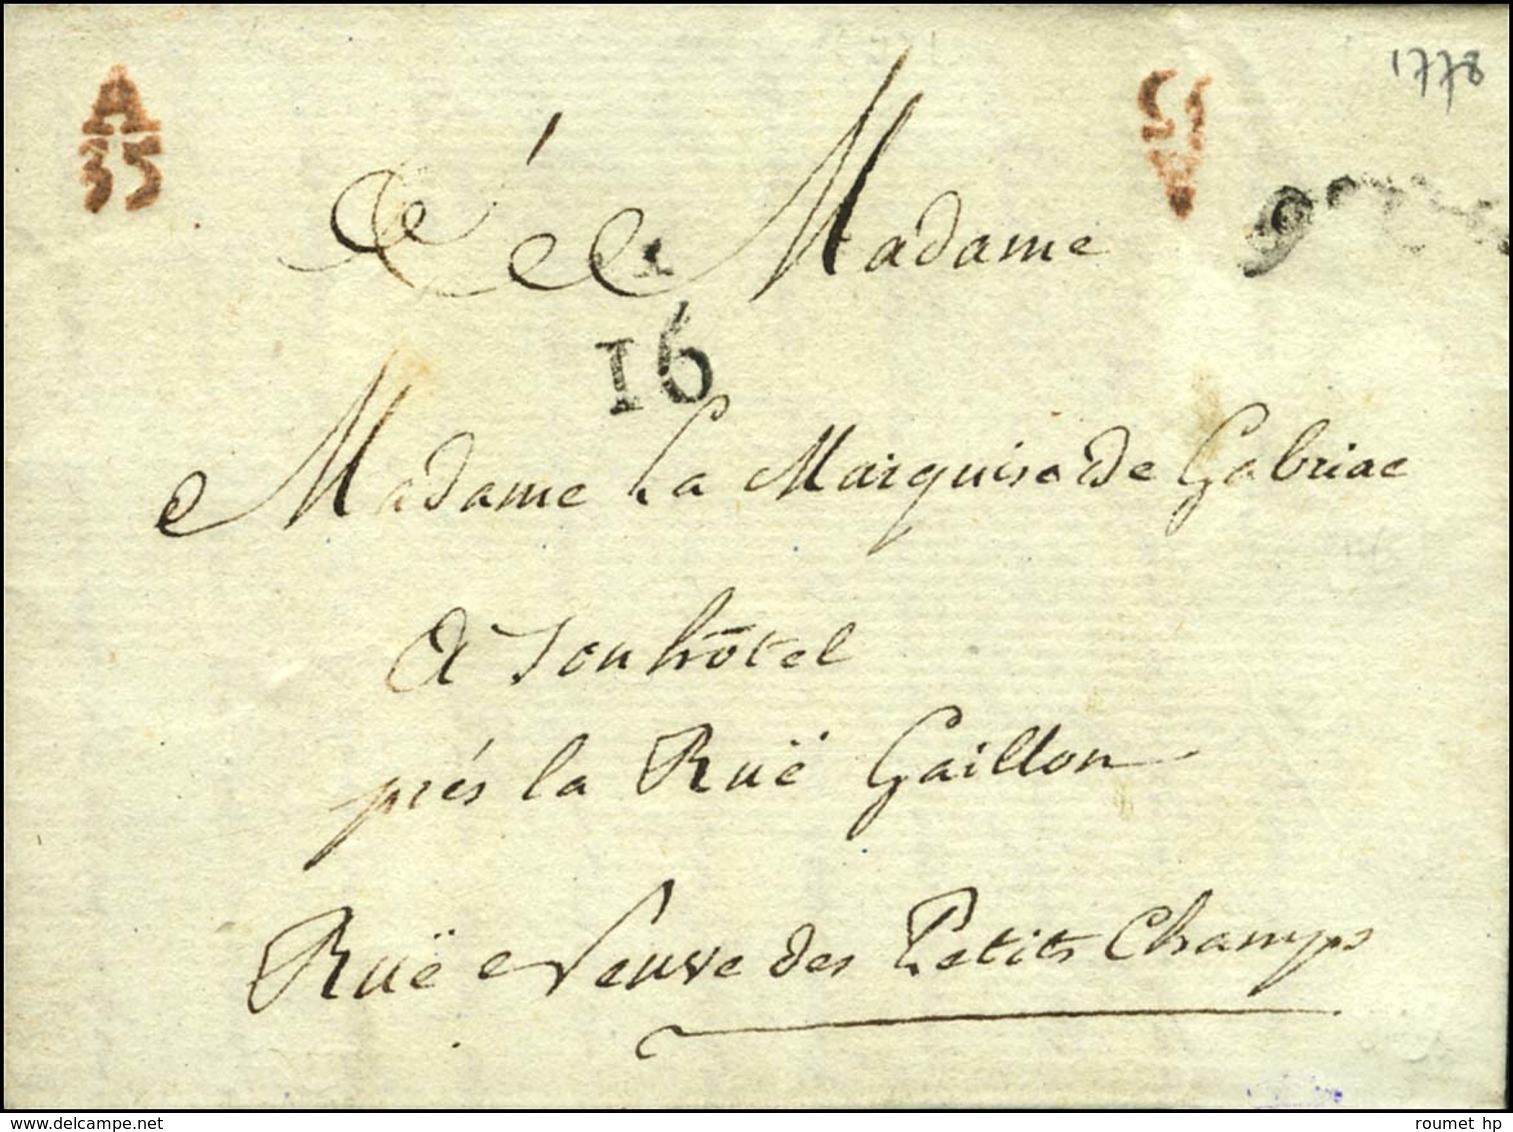 1778
A
35
A Madame
16
Madame La Marquise de Gabriac
A Son hôtel
prés la Ruë Gaillon
Ruë Neuve des Petits Champs
roumet hp
www.delcampe.net